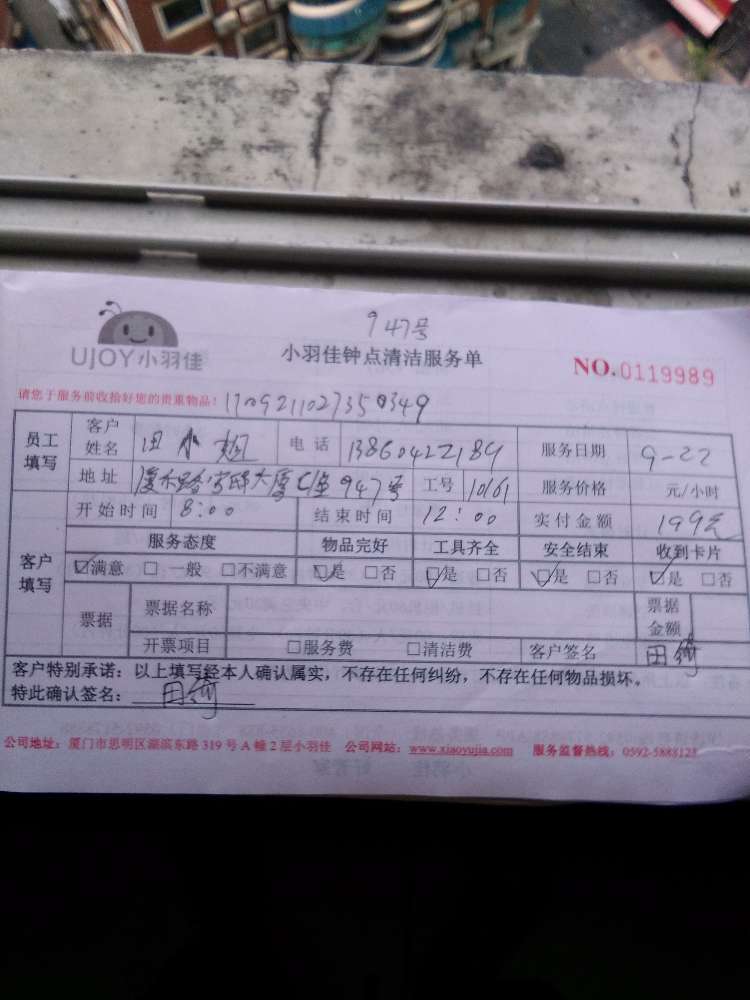 947号
UJOY小羽佳 小羽佳钟点清洁服务单 NO.0119989
请您于服务前收拾好您的贵重物品！1709211027350349
员工填写 客户姓名 田小姐 电话 13860422189 服务日期 9-22
地址 厦禾路 大厦 947号 工号 10161 服务价格 元/小时
客户填写 开始时间 8:00 结束时间 12:00 实付金额 199元
服务态度 物品完好 工具齐全 安全结束 收到卡片
☑满意 □一般 □不满意 ☑是 □否 ☑是 □否 ☑是 □否 ☑是 □否
票据 票据名称 票据金额
开票项目 □服务费 □清洁费 客户签名 田
客户特别承诺：以上填写经本人确认属实，不存在任何纠纷，不存在任何物品损坏。
特此确认签名：田
公司地址：厦门市思明区湖滨东路319号A幢2层小羽佳 公司网站：www.xiaoyujia.com 服务监督热线：0592-5888123